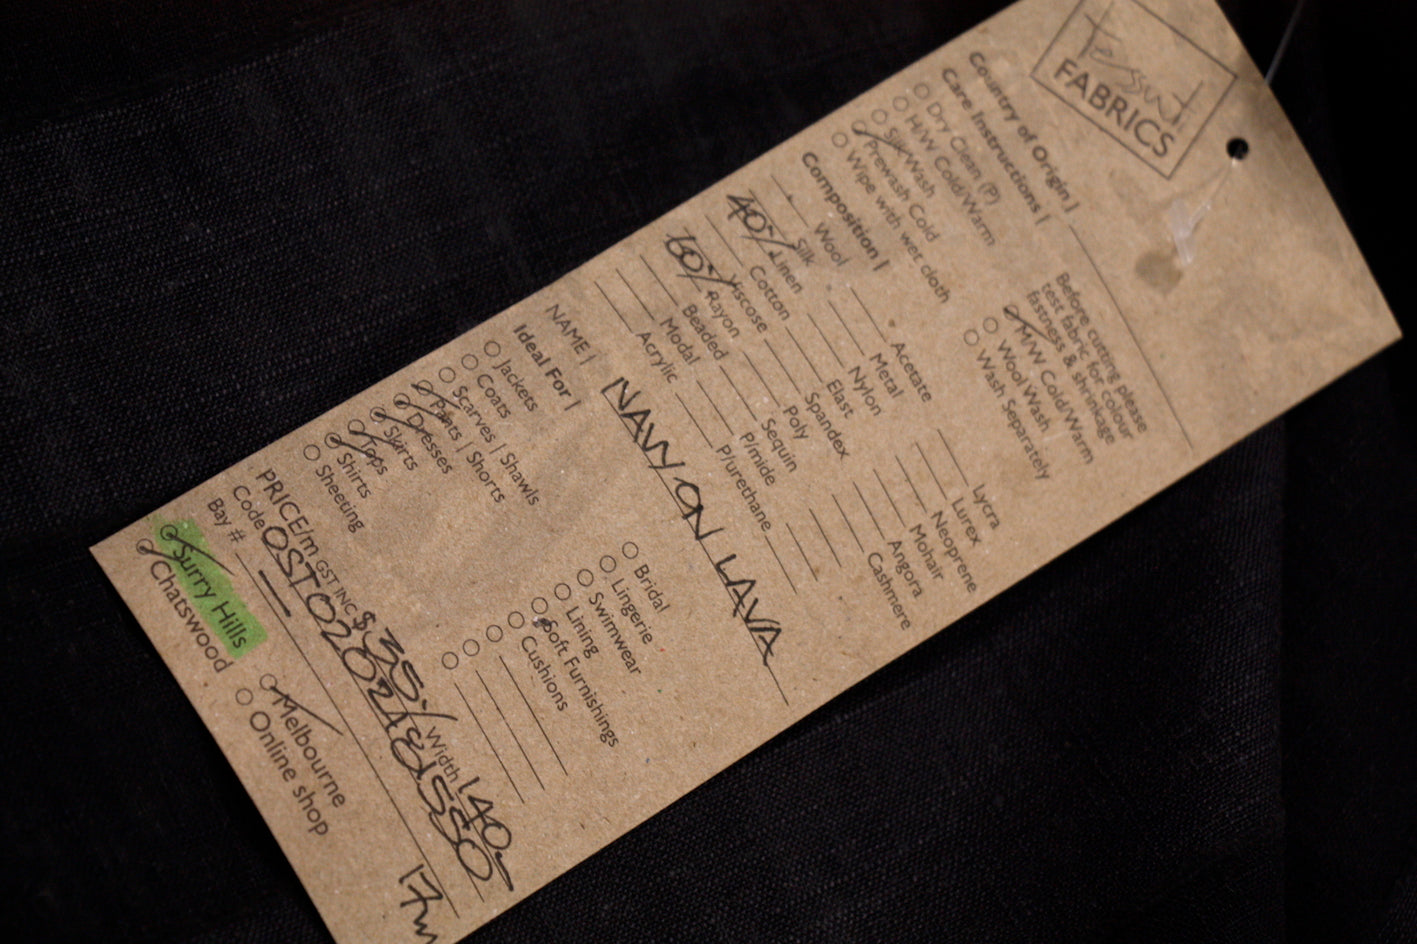 Tessuti
FABRICS
Country of Origin |
Care Instructions |
Dry Clean (P)
H/W Cold/Warm
Silk Wash
Prewash Cold
Wipe with wer cloth
Before cutting please
test fabric for colour
fastness & shrinkage
M/W Cold/Warm
Wool Wash
Wash Separately
Composition |
Wool
Silk
40% Linen
Cotton
Viscose
60% Rayon
Beaded
Modal
Acrylic
Acetate
Metal
Nylon
Elast
Spandex
Poly
Sequin
P/mide
P/urethane
Lycra
Lurex
Neoprene
Mohair
Angora
Cashmere
NAME | NAVY ON LAVA
Ideal For |
Jackets
Coats
Scarves | Shawls
Pants | Shorts
Dresses
Skirts
Tops
Shirts
Sheeting
Bridal
Lingerie
Swimwear
Lining
Soft Furnishings
Cushions
PRICE/m GST INC $ 35 Width 140
Code
Bay #
17m
Surry Hills
Chatswood
Melbourne
Online shop